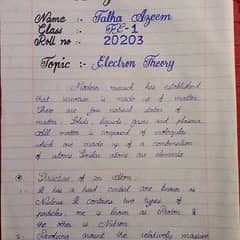 Name :- Talha Azeem
Class :- FE-1
Roll no :- 20203
Topic :- Electron Theory
Modern research has established
that universe is made up of matter.
There are four natural states of
matter. Solids liquids gases and plasma
All matter is composed of molecules
which are made up of a combination
of atoms Similar atoms are elements.
Structure of an Atom:
It has a hard central core known as
Nucleus It contains two types of
particles, one is known as Proton &
the other is Neutron
Revolving around the relatively massive